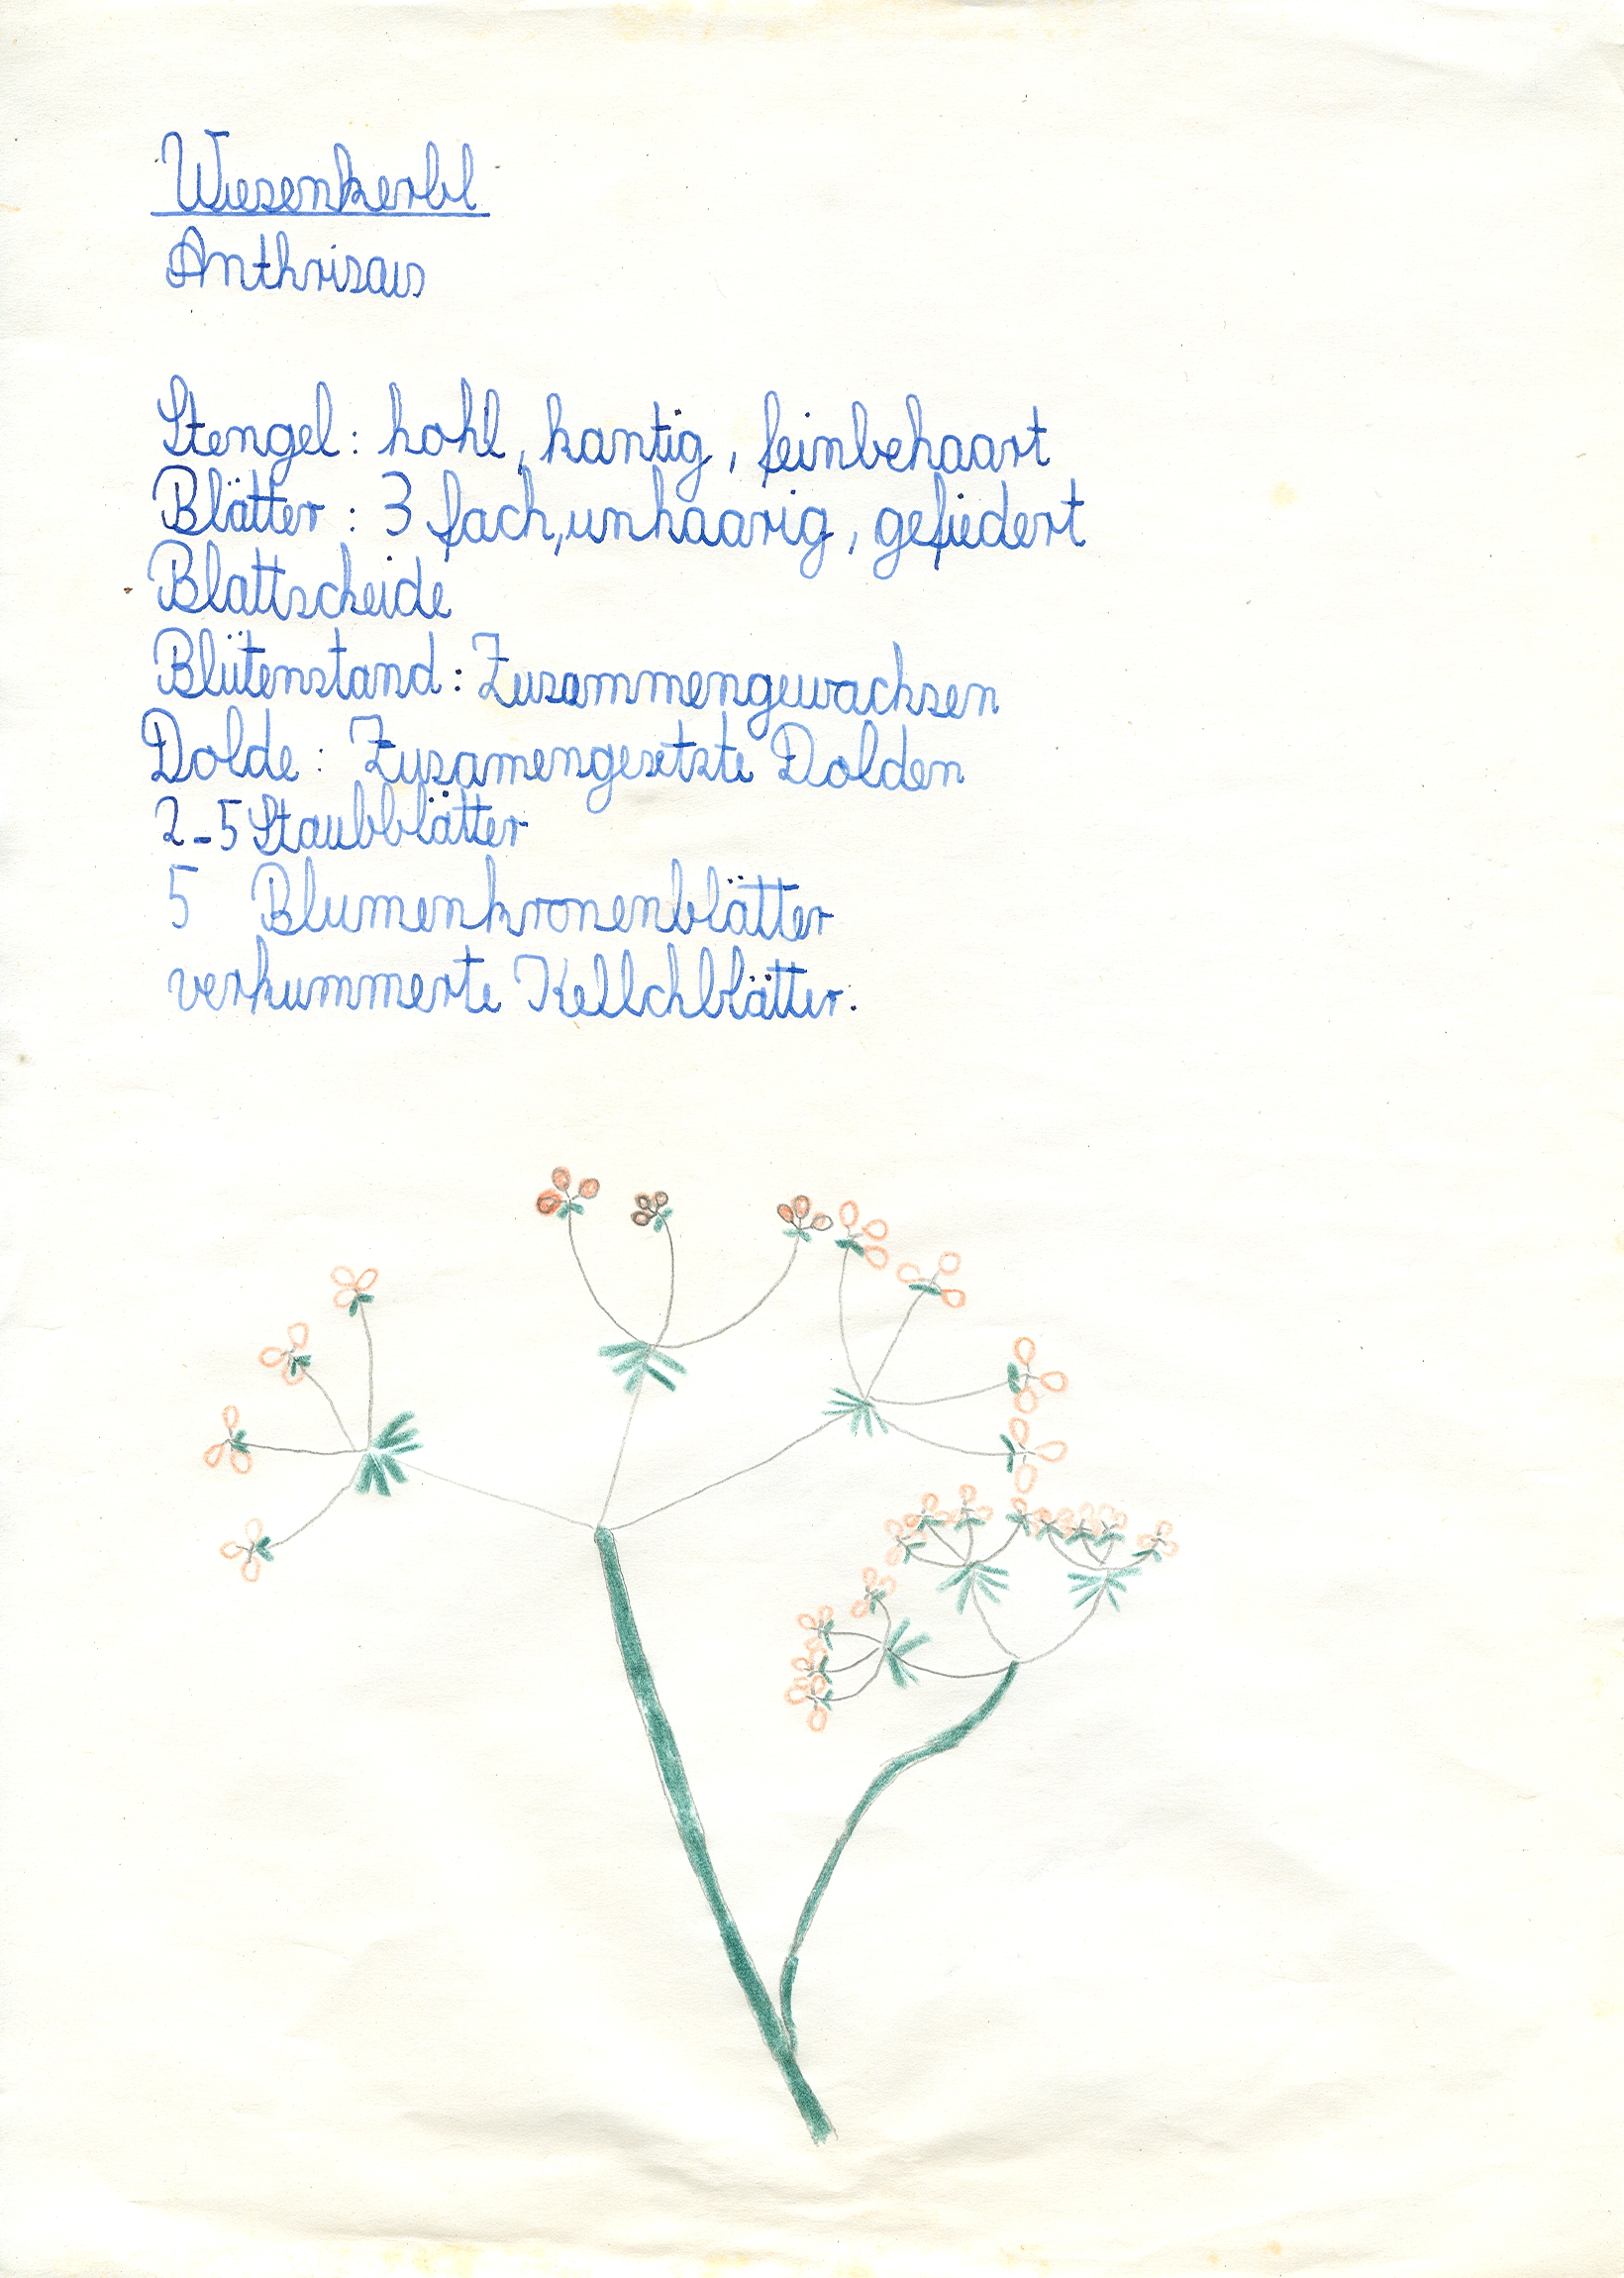 Wiesenkerbl
Anthrisaus
Stengel: hohl, kantig, feinbehaart
Blätter: 3 fach, unhaarig, gefiedert
Blattscheide
Blütenstand: Zusammengewachsen
Dolde: Zusamengesetzte Dolden
2-5 Staubblätter
5 Blumenkronenblätter
verkummerte Kellchblätter.